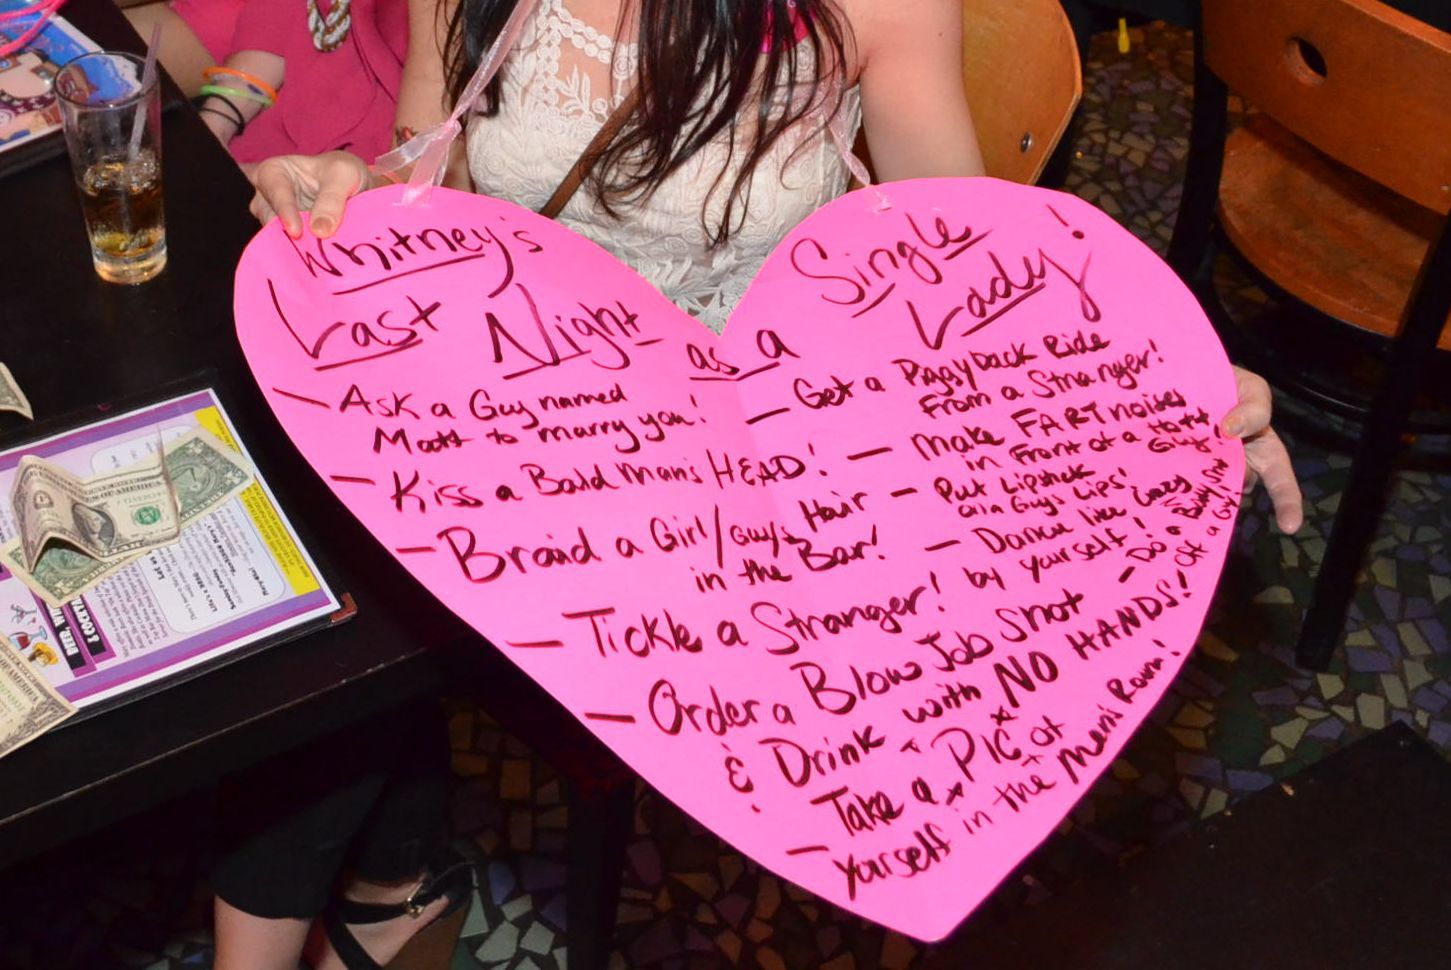 Whitney's
Last Night
as a
Single
Lady!
- Ask a Guy named
Matt to marry you!
- Kiss a Bald Man's HEAD!
- Braid a Girl/Guy's Hair
in the Bar!
- Tickle a Stranger!
- Order a Blow Job Shot
& Drink with NO HANDS!
- Take a PIC of
yourself in the Men's Room!
- Get a Piggyback Ride
From a Stranger!
- Make FART noises
in Front of a Hott
Guy!
- Put Lipstick
on a Guys Lips!
- Dance like crazy
by yourself!
- Do a Body Shot
of a Guy!